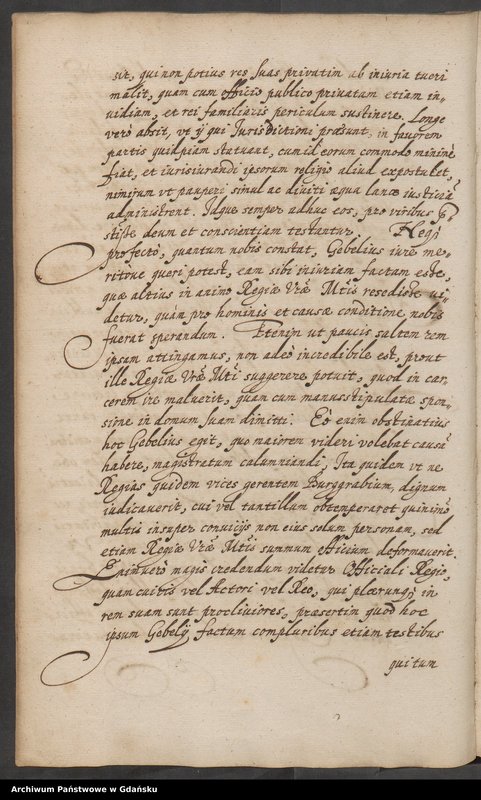 sit, qui non potius res suas privatim ab iniuria tueri
malit, quam cum officio publico privatum etiam in-
vidiam, et rei familiaris periculum sustinere. Longe
vero absit, vt ÿ qui Jurisdictioni præsunt, in favorem
partis quidpiam statuant, cum id eorum commodo minimè
fiat, et iurisiurandi ipsorum religio aliud expostulet,
nimirum vt pauperi simul ac diviti æqua lance iusticiā
administrent. Idque semper adhuc eos, pro viribus
deum et conscientiam testantur. Neqꝫ
profectò, quantum nobis constat, Gebelius iure me-
ritove queri potest, eam sibi iniuriam factam esse,
quæ altius in animo Regiæ Vræ Mtis resedisse vi-
detur, quàm pro hominis et causæ conditione nobis
fuerat sperandum. Etenim ut paucis saltem rem
ipsam attingamus, non adeò incredibile est, prout
ille Regiæ Vræ Mti suggerere potuit, quod in car-
cerem ire maluerit, quam cum manu stipulatæ spon-
sione in domum suam dimitti. Eò enim obstinatius
hoc Gebelius egit, quo maiorem videri volebat causā
habere, magistratum calumniandi; Ita quidem vt ne
Regias quidem vices gerentem Burggrabium, dignum
iudicaverit, cui vel tantillum obtemperaret quinimò
multis insuper convicÿs non eius solum personam, sed
etiam Regiæ Vræ Mtis summum officium deformaverit.
Enimverò magis credendum videtur Officiali Regio,
quam cuivis vel Actori vel Reo, qui plærunqꝫ in
rem suam sunt procliviores, præsertim quod hoc
ipsum Gebelÿ factum compluribus etiam testibus
qui tum
Archiwum Państwowe w Gdańsku